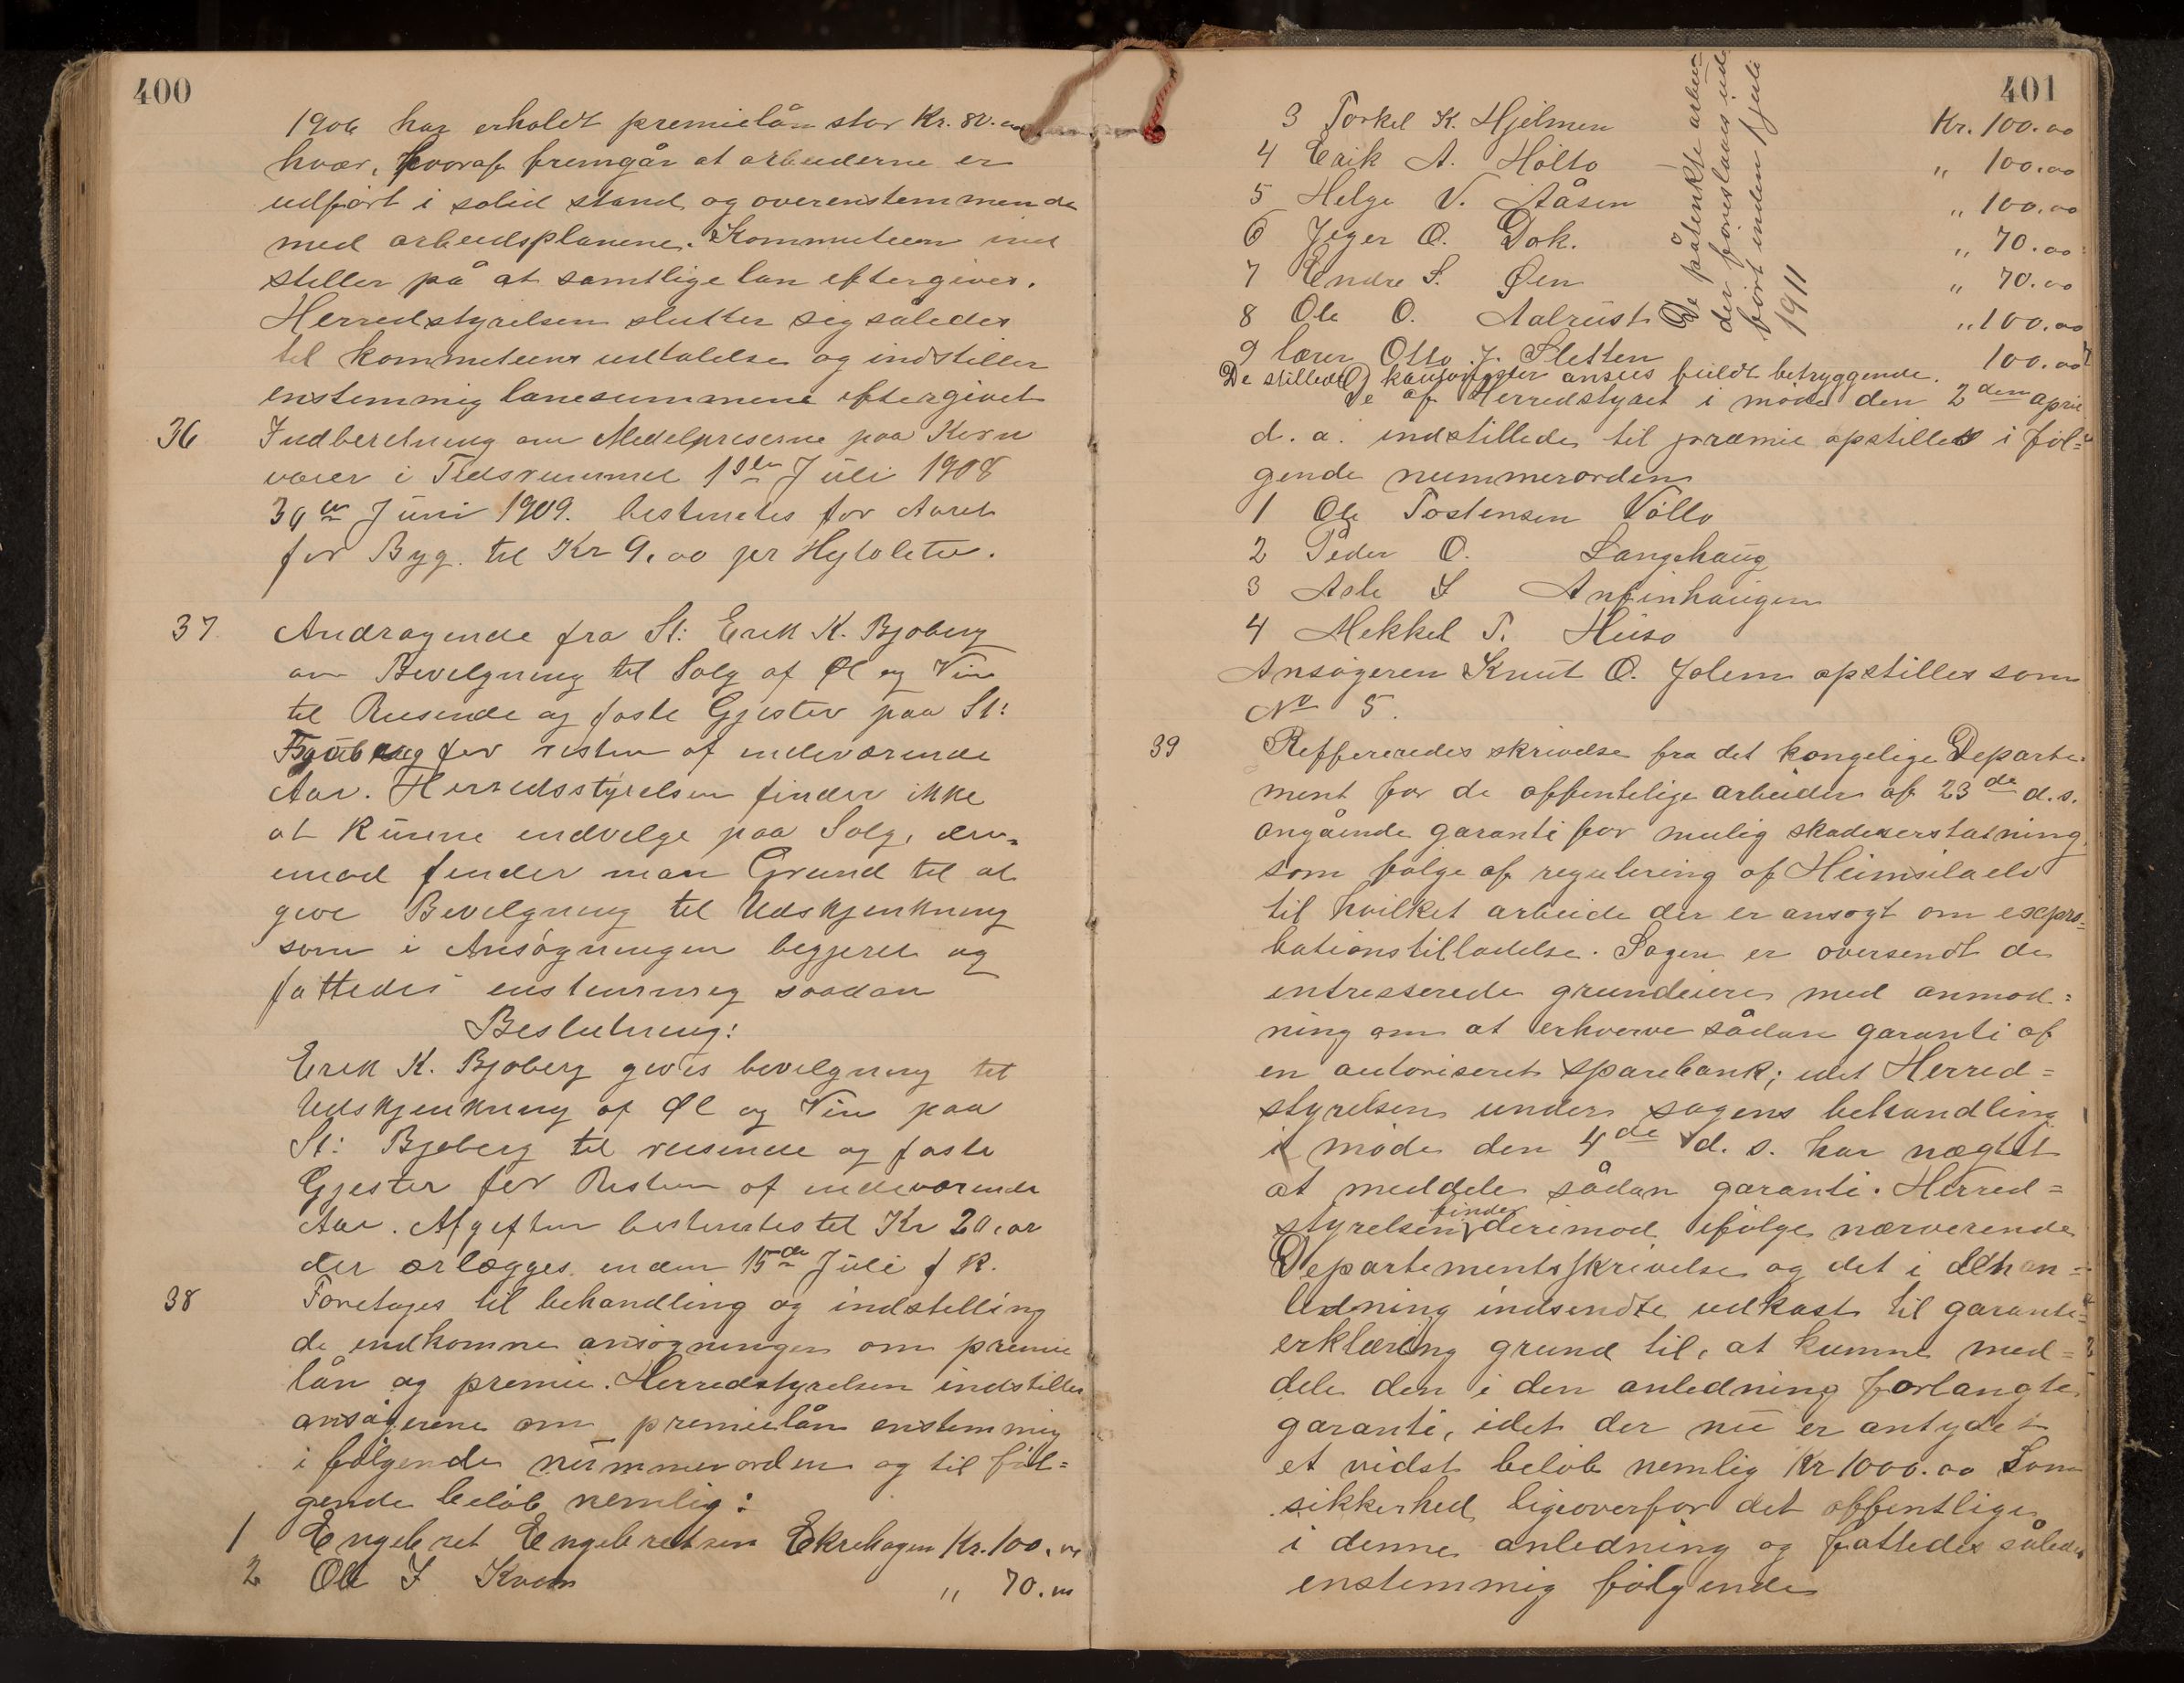 400
1906 har erholdt premielån stor Kr. 80.00
hver, hvoraf fremgår at arbeiderne er
udført i solid stand og overenstemmende
med arbeidsplanene. Kommuteen ind
stiller på at samtlige lån eftergives.
Herredstyrelsen slutter sig således
til kommuteens udtalelse og indstiller
enstemmig lånesummene eftergivet
36 Indberetning om Medelpriserne paa Korn
varer i Tidsrummet 1ste Juli 1908
30te Juni 1909. bestemtes for Aaret
for Byg. til Kr 9.00 per Hektoliter.
37 Andragende fra St: Erik K. Bjøberg
om Bevilgning til Salg af Øl og Vin
til Reisende og faste Gjester paa St:
Bjøberg for resten af indeværende
Aar. Herredsstyrelsen finder ikke
at kunne indvelge paa Salg, der-
imod finder man Grund til at
give Bevilgning til Udskjenkning
som i Ansøgningen begjeret og
fattedes enstemmig saadan
Beslutning:
Erik K. Bjøberg gives bevilgning til
Udskjenkning af Øl og Vin paa
St: Bjøberg til reisende og faste
Gjester for Resten af indeværende
Aar. Afgiften bestemtes til Kr 20.00
der erlægges inden 15de Juli f K.
38 Foretages til behandling og indstilling
de indkomne ansøgninger om premie
lån og premie. Herredstyrelsen indstiller
ansøgerne om premielån enstemmig
i følgende nummerorden og til føl=
gende beløb nemlig:
1 Engebret Engebretsen Ekrehagen Kr. 100.00
2 Ole I Kvam " 70.00
401
3 Torkel K. Hjelmen Kr. 100.00
4 Erik A. Holto " 100.00
5 Helge V. Aåsen " 100.00
6 Jeger O. Dok. " 70.00
7 Endre S. Øen " 70.00
8 Ole O. Aalrust " 100.00
9 lærer Otto J. Sletten 100.00
De påtenkte arbei
der foreslaaes ud
ført inden Juli
1911
De stillede kausjonister ansees fuldt betryggende.
De af Herredstyret i møde den 2den april
d. a. indstillede til præmie opstilles i føl=
gende nummerorden
1 Ole Tostensen Vøllo
2 Peder O. Langehaug
3 Asle S Anfinhaugen
4 Mekkel T. Huso
Ansøgeren Knut O. Jolem opstilles som
No 5.
39 Reffereredes skrivelse fra det kongelige Departe-
ment for de offentelige arbeider af 23de d.s.
angående garanti for mulig skadeserstatning,
som følge af regulering af Heimsilaelv
til hvilket arbeide der er ansøgt om expro-
bationstilladelse. Sagen er oversendt de
entresserede grundeiere med anmod=
ning om at erhverve sådan garanti af
en autoriseret sparebank; idet Herred=
styrelsen under sagens behandling
i møde den 4de d. s. har nægtet
at meddele sådan garanti. Herred=
styrelsen finder derimod ifølge nærverende
Departementsskrivelse og det i den an=
ledning indsendte udkast til garanti=
erklæring grund til, at kunne med=
dele den i den anledning forlangte
garanti, idet der nu er antydet
et vidst beløb nemlig Kr 1000.00 Som
sikkerhed ligeoverfor det offentlige
i denne anledning og fattedes således
enstemmig følgende